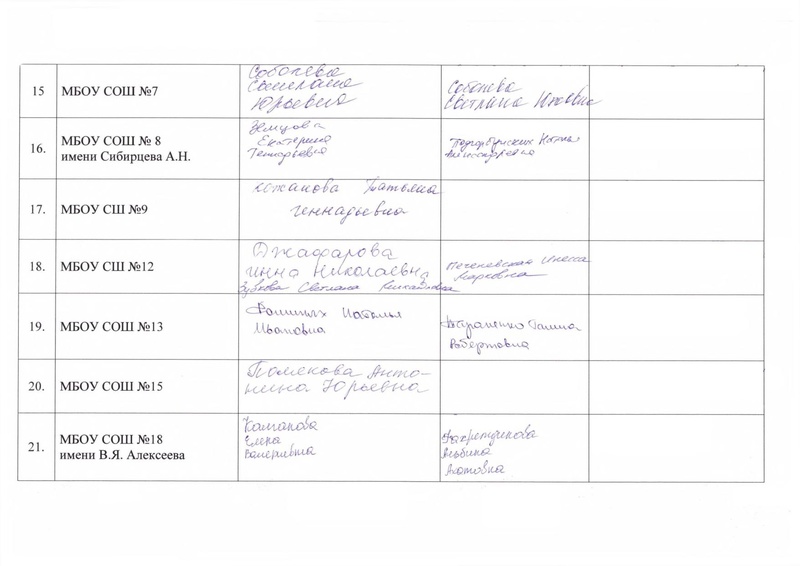 15 МБОУ СОШ №7
Соболева
Светлана
Юрьевна
Соболева
Светлана Юрьевна
16. МБОУ СОШ № 8
имени Сибирцева А.Н.
Земцова
Екатерина
Геннадьевна
Наталья
Александровна
17. МБОУ СШ №9
Кожанова Татьяна
Геннадьевна
18. МБОУ СШ №12
Джафарова
Инна Николаевна
Зубкова Светлана
Инесса
Марковна
19. МБОУ СОШ №13
Фоминых Наталья
Ивановна
Галина
Робертовна
20. МБОУ СОШ №15
Полякова Анто-
нина Юрьевна
21. МБОУ СОШ №18
имени В.Я. Алексеева
Колпакова
Елена
Валерьевна
Альбина